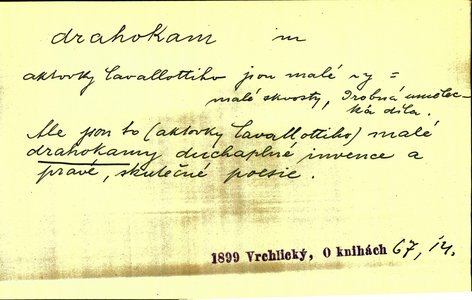 drahokam m
aktovky Cavallottiho jsou malé vý =
malé skvosty, drobná umělec-
ká díla.
Ale jsou to (aktovky Cavallottiho) malé
drahokamy duchaplné invence a
pravé, skutečné poesie.
1899 Vrchlický, O knihách 67, 14.